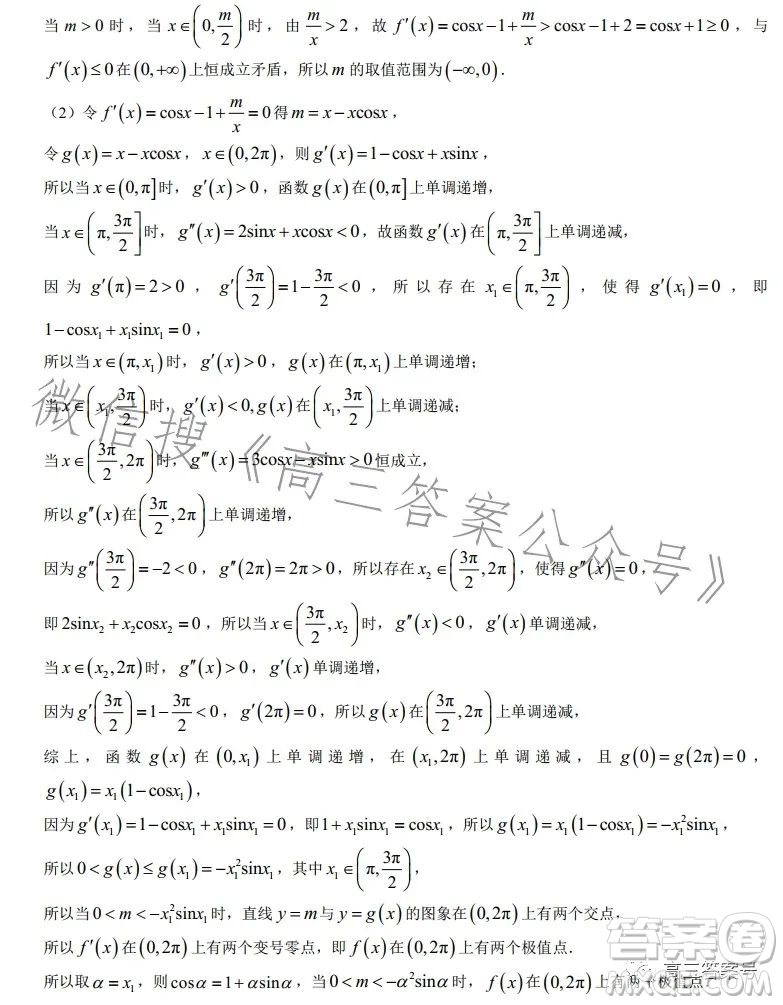 当 m > 0 时，当 x∈(0, m/2) 时，由 m/x > 2，故 f′(x) = cosx − 1 + m/x > cosx − 1 + 2 = cosx + 1 ≥ 0，与
f′(x) ≤ 0 在 (0, +∞) 上恒成立矛盾，所以 m 的取值范围为 (−∞, 0)．
（2）令 f′(x) = cosx − 1 + m/x = 0 得 m = x − xcosx，
令 g(x) = x − xcosx，x∈(0, 2π)，则 g′(x) = 1 − cosx + xsinx，
所以当 x∈(0, π] 时，g′(x) > 0，函数 g(x) 在 (0, π] 上单调递增，
当 x∈(π, 3π/2] 时，g″(x) = 2sinx + xcosx < 0，故函数 g′(x) 在 (π, 3π/2] 上单调递减，
因为 g′(π) = 2 > 0，g′(3π/2) = 1 − 3π/2 < 0，所以存在 x₁∈(π, 3π/2)，使得 g′(x₁) = 0，即
1 − cosx₁ + x₁sinx₁ = 0，
所以当 x∈(π, x₁) 时，g′(x) > 0，g(x) 在 (π, x₁) 上单调递增；
当 x∈(x₁, 3π/2) 时，g′(x) < 0, g(x) 在 (x₁, 3π/2) 上单调递减；
当 x∈(3π/2, 2π) 时，g‴(x) = 3cosx − xsinx > 0 恒成立，
所以 g″(x) 在 (3π/2, 2π) 上单调递增，
因为 g″(3π/2) = −2 < 0，g″(2π) = 2π > 0，所以存在 x₂∈(3π/2, 2π)，使得 g″(x) = 0，
即 2sinx₂ + x₂cosx₂ = 0，所以当 x∈(3π/2, x₂) 时，g″(x) < 0，g′(x) 单调递减，
当 x∈(x₂, 2π) 时，g″(x) > 0，g′(x) 单调递增，
因为 g′(3π/2) = 1 − 3π/2 < 0，g′(2π) = 0，所以 g(x) 在 (3π/2, 2π) 上单调递减，
综上，函数 g(x) 在 (0, x₁) 上单调递增，在 (x₁, 2π) 上单调递减，且 g(0) = g(2π) = 0，
g(x₁) = x₁(1 − cosx₁)，
因为 g′(x₁) = 1 − cosx₁ + x₁sinx₁ = 0，即 1 + x₁sinx₁ = cosx₁，所以 g(x₁) = x₁(1 − cosx₁) = −x₁²sinx₁，
所以 0 < g(x) ≤ g(x₁) = −x₁²sinx₁，其中 x₁∈(π, 3π/2)，
所以当 0 < m < −x₁²sinx₁ 时，直线 y = m 与 y = g(x) 的图象在 (0, 2π) 上有两个交点，
所以 f′(x) 在 (0, 2π) 上有两个变号零点，即 f(x) 在 (0, 2π) 上有两个极值点．
所以取 α = x₁，则 cosα = 1 + αsinα，当 0 < m < −α²sinα 时，f(x) 在 (0, 2π) 上有两个极值点．
微信搜《高三答案公众号》
高三答案号
答案圈
MXQE.COM